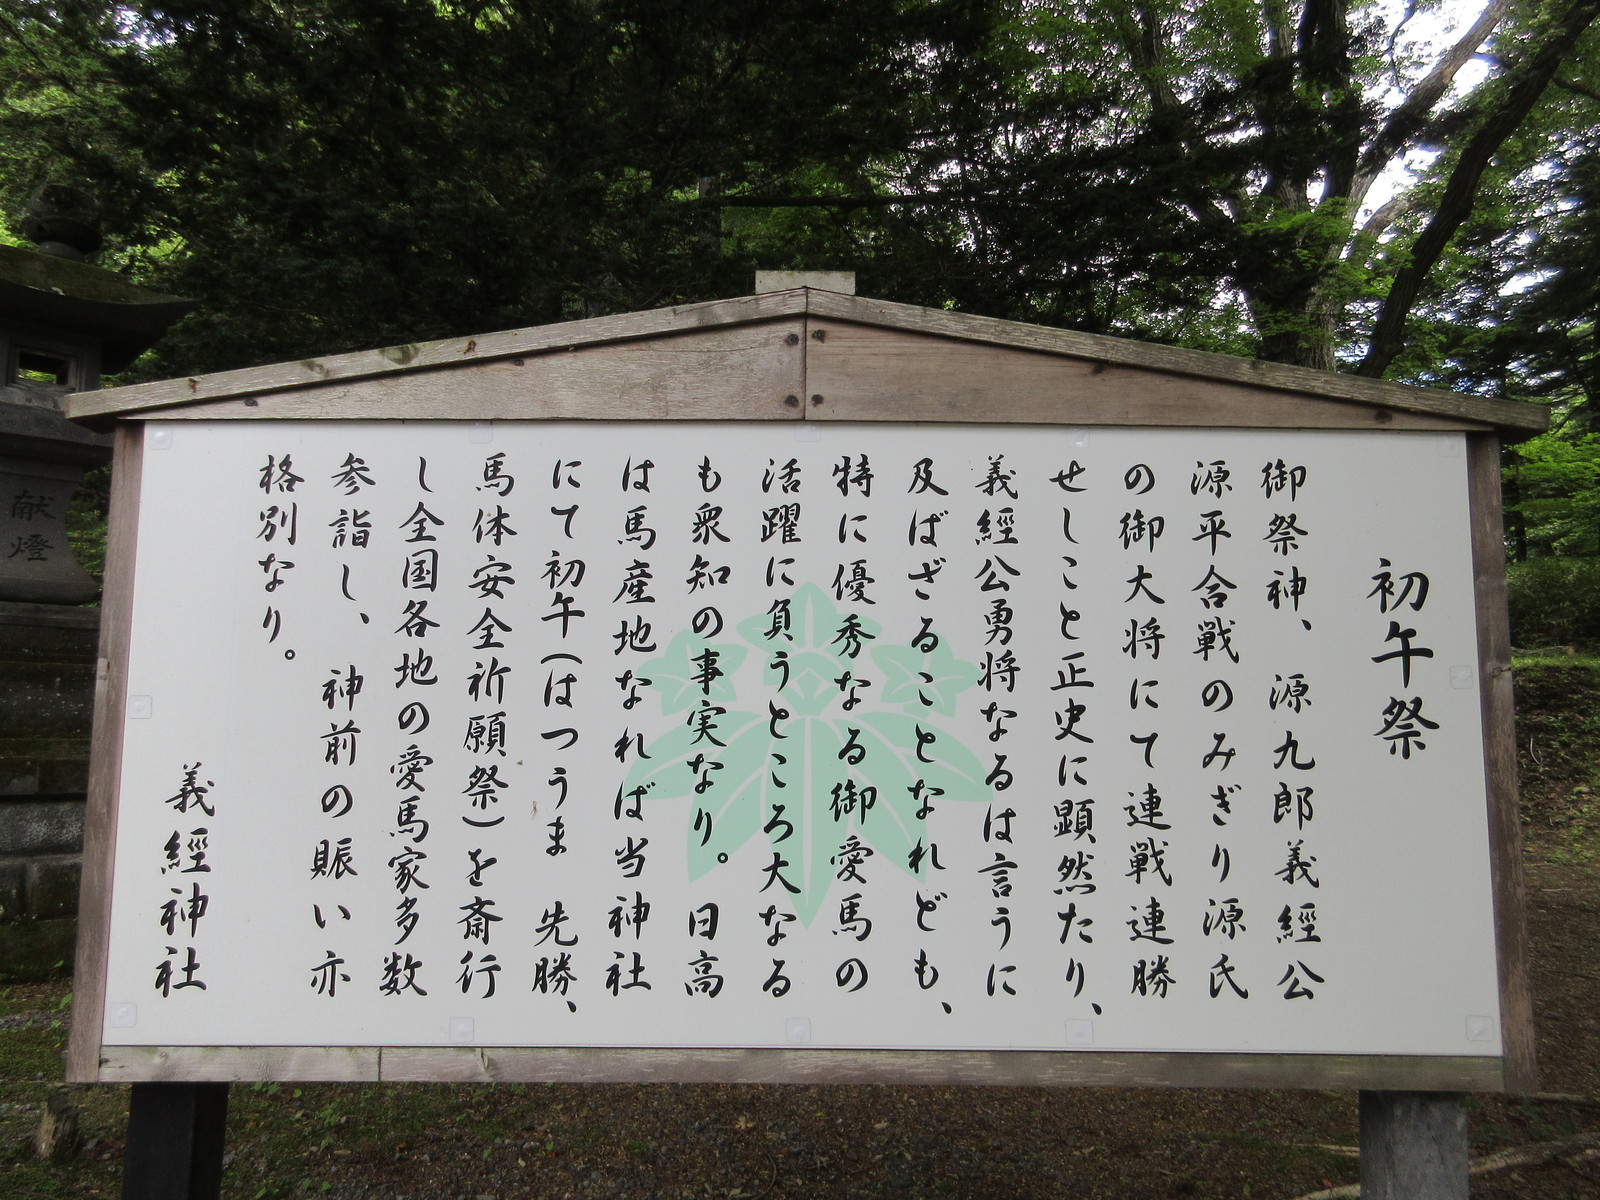 初午祭
御祭神、源九郎義經公
源平合戦のみぎり源氏
の御大将にて連戦連勝
せしこと正史に顕然たり、
義經公勇将なるは言うに
及ばざることなれども、
特に優秀なる御愛馬の
活躍に負うところ大なる
も衆知の事実なり。日高
は馬産地なれば当神社
にて初午(はつうま 先勝、
馬体安全祈願祭)を斎行
し全国各地の愛馬家多数
参詣し、神前の賑い亦
格別なり。
義經神社
献燈